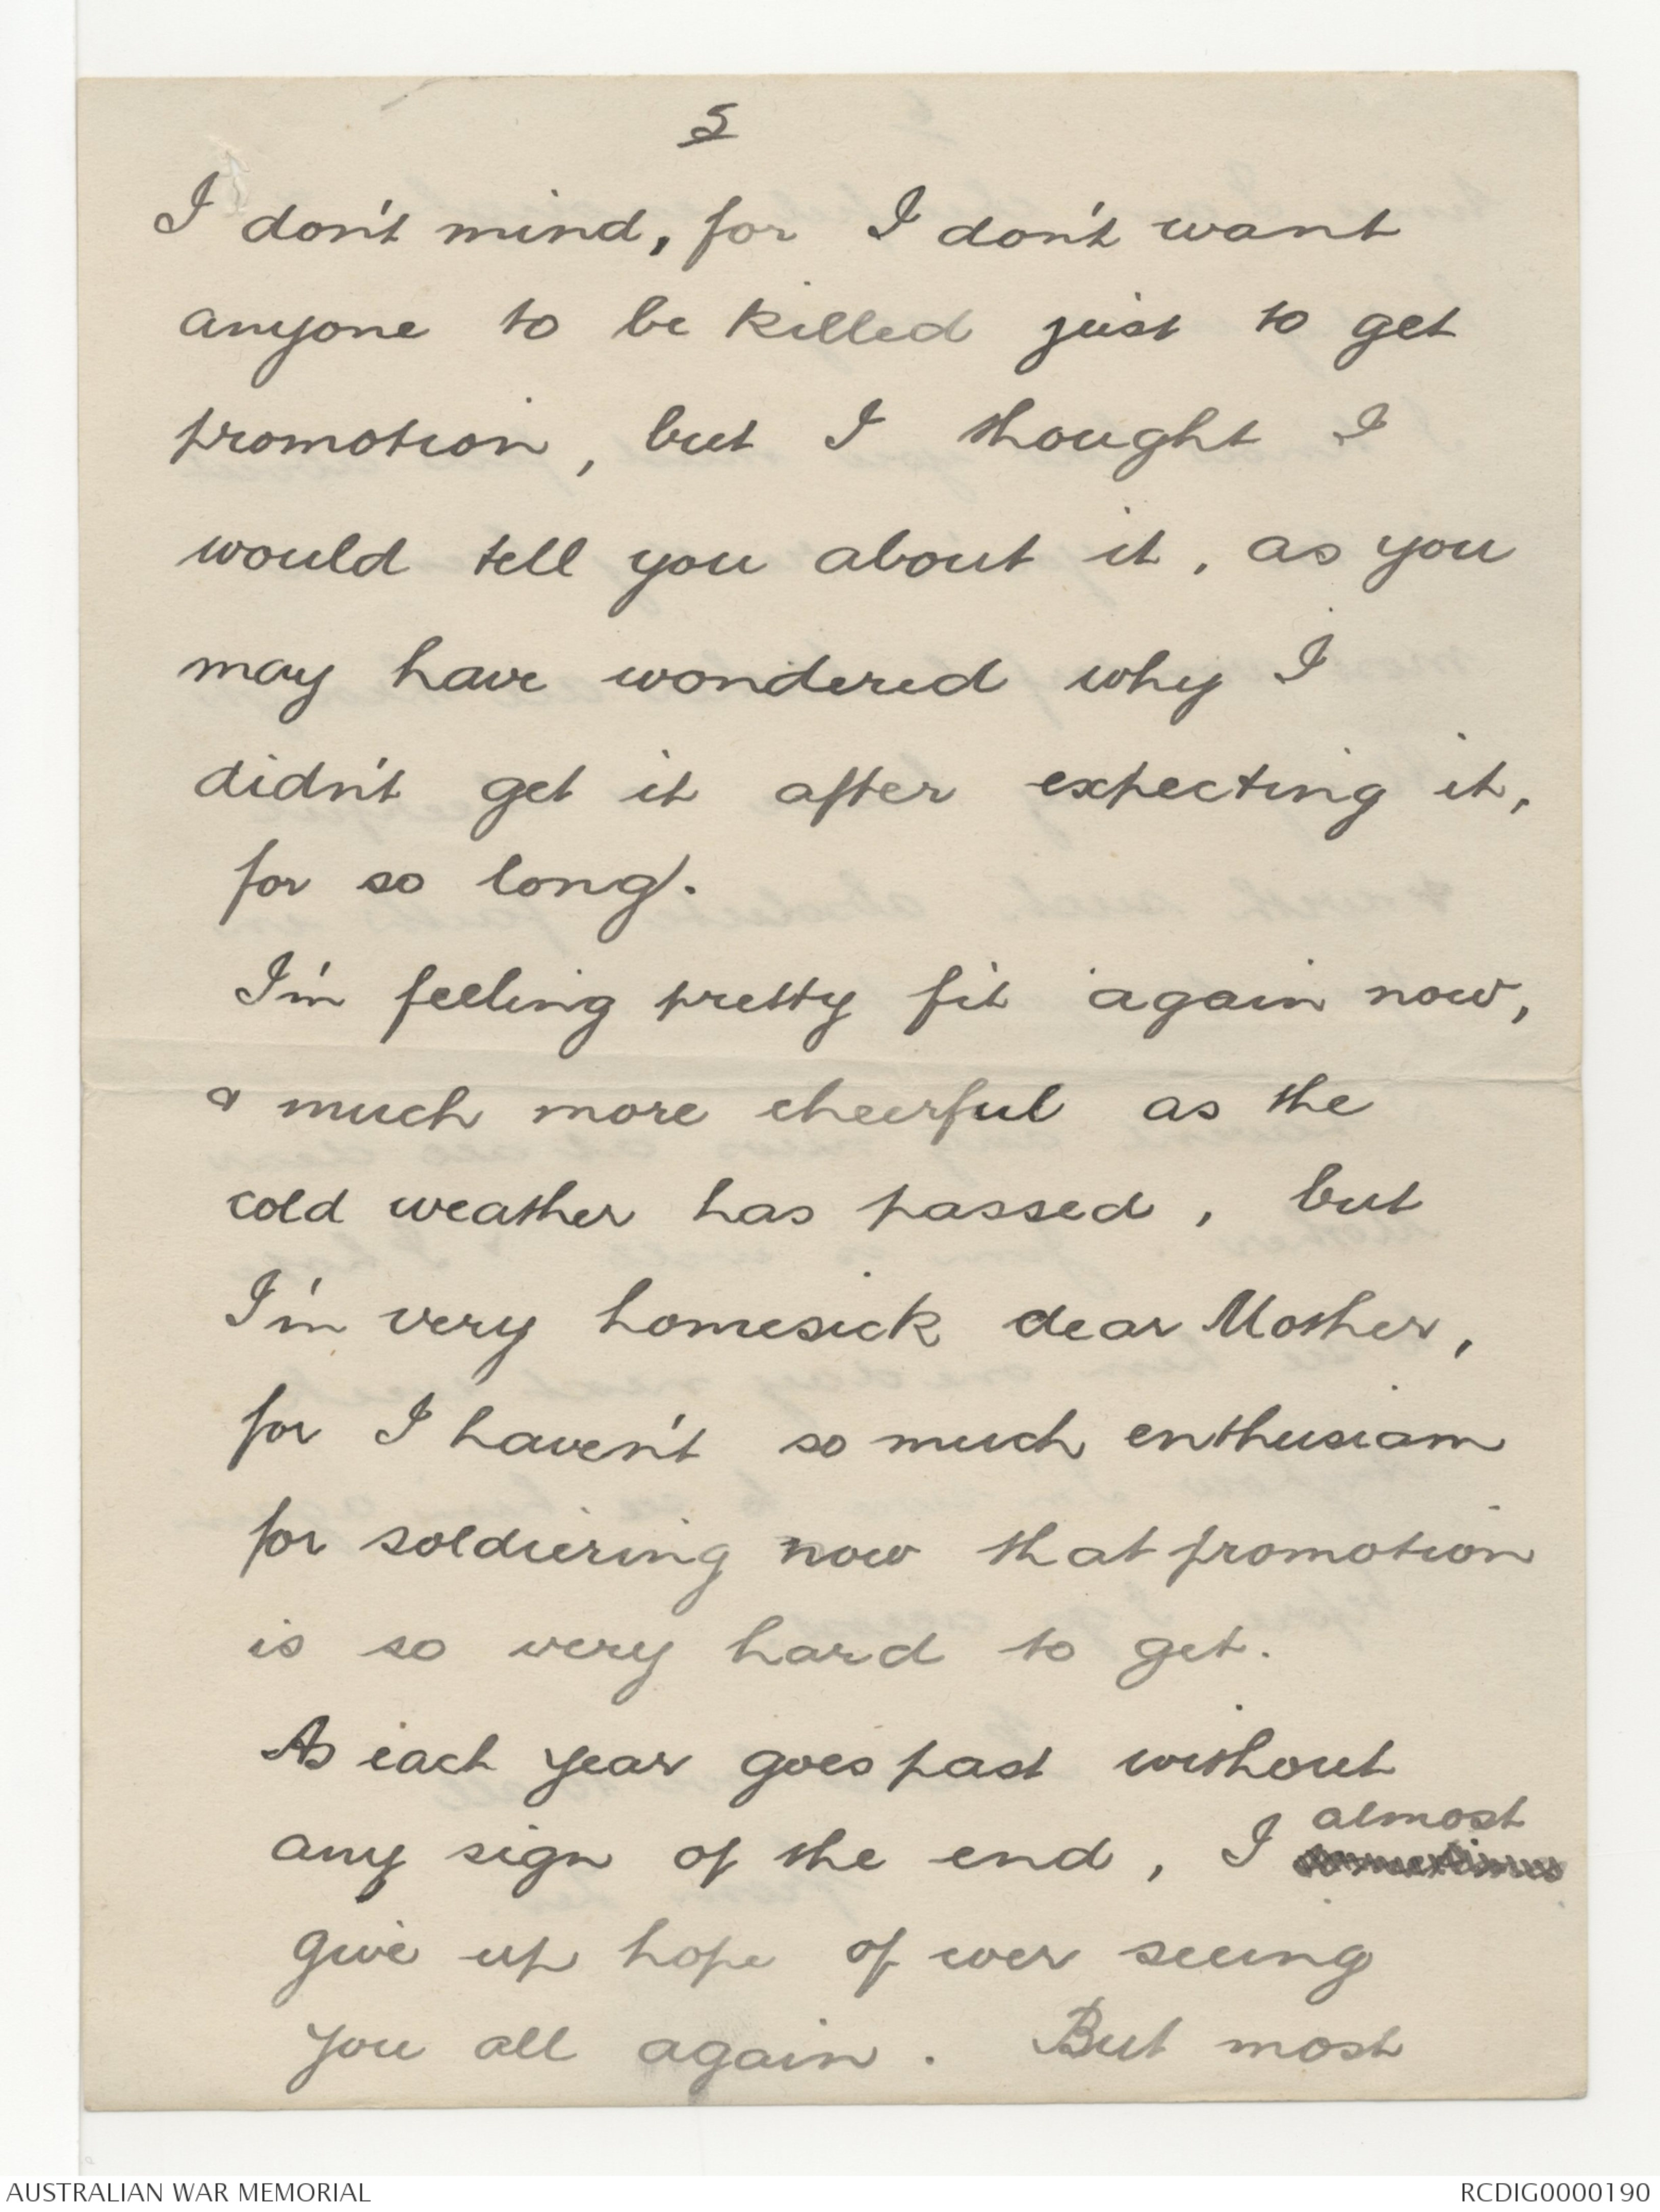 5
I don't mind, for I don't want
anyone to be killed just to get
promotion, but I thought I
would tell you about it, as you
may have wondered why I
didn't get it after expecting it,
for so long.
I'm feeling pretty fit again now,
& much more cheerful as the
cold weather has passed, but
I'm very homesick dear Mother,
for I haven't so much enthusiam
for soldiering now that promotion
is so very hard to get.
As each year goes past without
almost
any sign of the end, I sometimes
give up hope of ever seeing
you all again. But most
AUSTRALIAN WAR MEMORIAL
RCDIG0000190